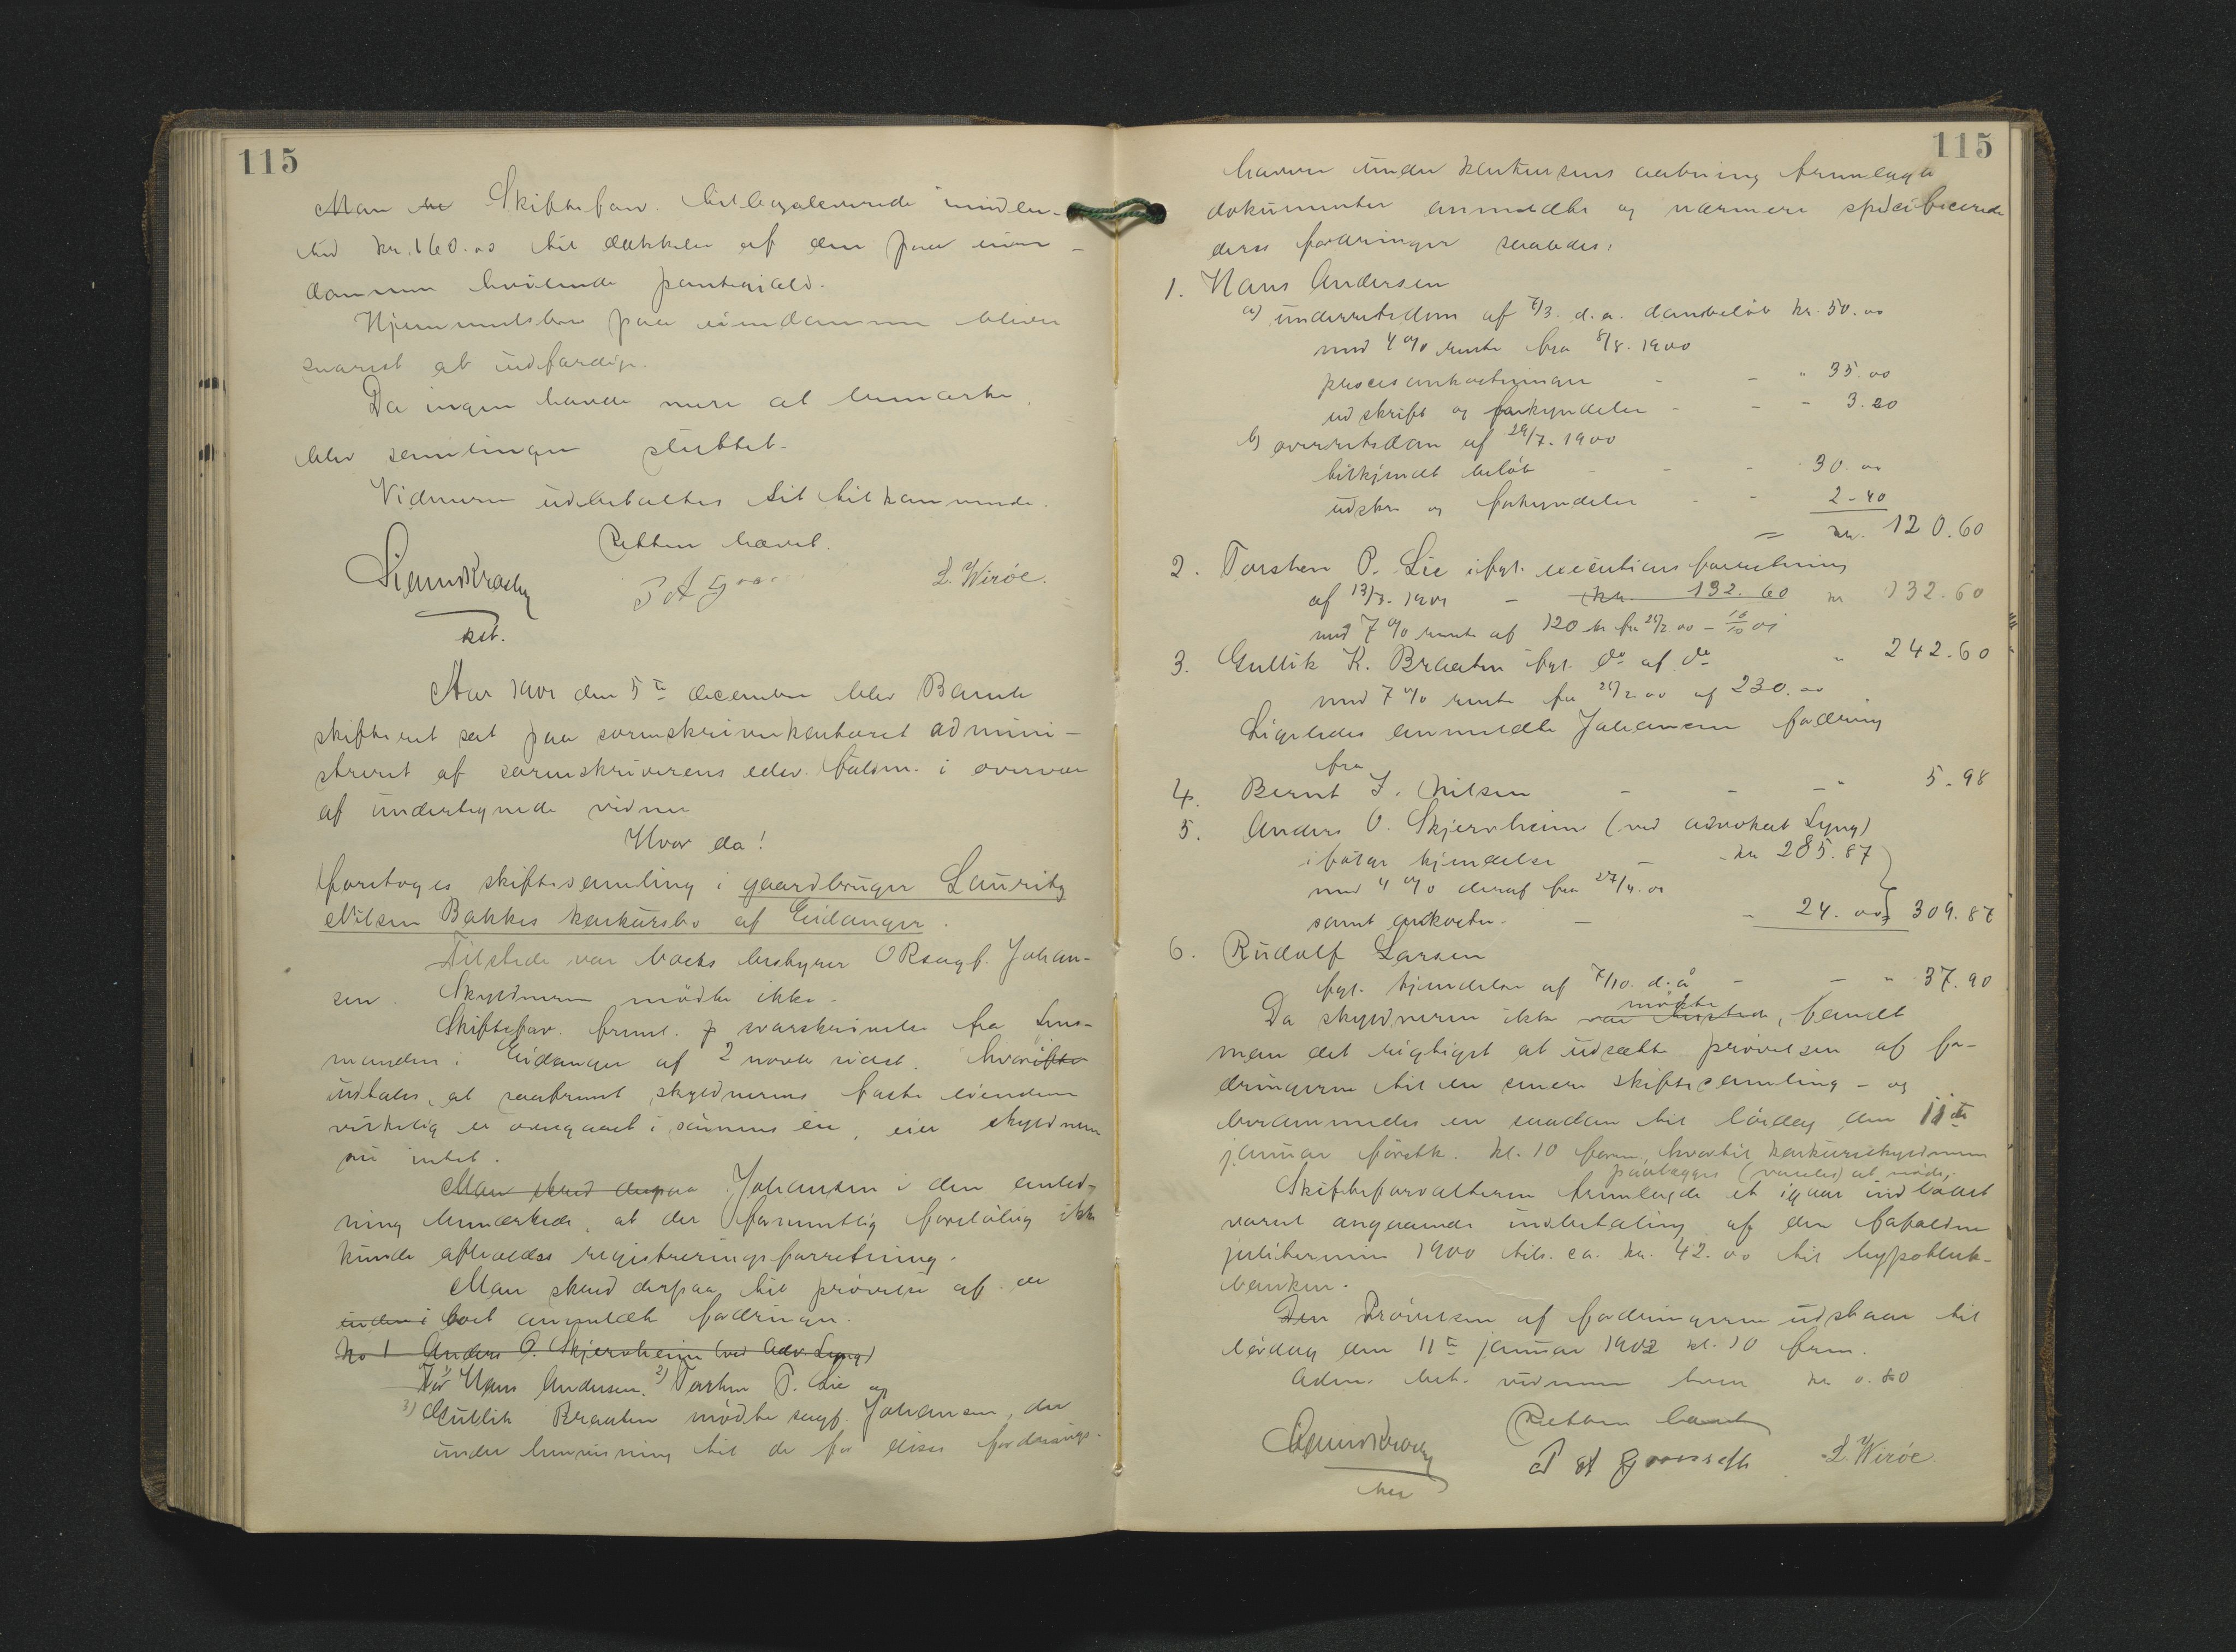 115
Man Skifteforv.
ved kr. 160.00 til dækkelse af den paa eien-
dommen hvilende pantegjæld.
Hjemmelsbrev paa eiendommen bliver
snarest at udfærdige.
Da ingen havde mere at bemærke,
blev samlingen sluttet.
Vidnerne udbetaltes sit tilkommende.
Retten hævet.
kst.
L. Wirøe.
Aar 1901 den 5te december blev Bamble
skifteret sat paa sorenskriverkontoret admini-
streret af sorenskriverens edsv. fuldm. i overvær
af undertegnede vidner
Hvor da!
foretoges skiftesamling i gaardbruger Lauritz
Nilsen Bakkes konkursbo af Eidanger.
Tilstede var boets bestyrer ORsagf. Johan-
sen. Skyldneren mødte ikke.
Skifteforv. freml. p svarskrivelse fra Lens-
manden i Eidanger af 2 novbr sidst. hvorefter
udtales, at saafremt skyldnerens faste eiendom
virkelig er overgaaet i sønnens eie, eier skyldneren
nu intet.
Man skred derpaa Johansen i den anled-
ning bemærkede, at der formentlig foreløbig ikke
kunde afholdes registreringsforretning.
Man skred derpaa til prøvelse af de
inden i boet anmeldte fordringer.
No 1 Anders O. Skjervheim (ved Adv. Lyng)
For 1) Hans Andersen, 2) Torsten P. Lie og
3) Gullik Braaten mødte sagf. Johansen, der
under henvisning til de for disse fordrings-
115
havere under konkursens aabning fremlagte
dokumenter anmeldte og nærmere specificerede
deres fordringer saaledes:
1. Hans Andersen
a) underretsdom af 7/3. d.a. domsbeløb kr. 50.00
med 4 % rente fra 8/8. 1900
procesomkostninger - - " 35.00
udskrift og forkyndelse - - - 3.20
b) overretsdom af 29/7. 1900
tilkjendt beløb - - - 30.00
udskr og forkyndelse - - 2-40
= kr. 120.60
2. Torsten P. Lie ifgl. executionsforretning
af 13/3. 1901 - kr. 132.60 kr 132.60
med 7 % rente af 120 kr fra
3. Gullik K. Braaten ifgl. do af do " 242.60
med 7 % rente fra af 230.00
Ligeledes anmeldte Johansen fordring
fra
4. Bernt J. Nilsen - - - " 5.98
5. Anders O. Skjervheim (ved advokat Lyng)
ifølge kjendelse - - kr 285.87
med 4 % deraf fra 27/4.01
samt omkostn. - - 24.00 309.87
6. Rudolf Larsen
ifgl. kjendelse af 7/10. d.å - - " 37.90
Da skyldneren ikke var tilstede mødte, fandt
man det rigtigst at udsætte prøvelsen af for-
dringerne til en senere skiftesamling - og
berammedes en saadan til lørdag den 11te
januar førstk. kl. 10 form, hvortil konkursskyldneren
paalægges (varsles) at møde.
Skifteforvalteren fremlagde et igaar indløbet
varsel angaaende indbetaling af den forfaldne
julitermin 1900 tils. ca. kr. 42.00 til hypothek-
banken.
Den Prøvelsen af fordringerne udstaar til
lørdag den 11te januar 1902 kl. 10 form.
Adm. bet. vidnerne hver kr 0.80
Retten hævet
L. Wirøe